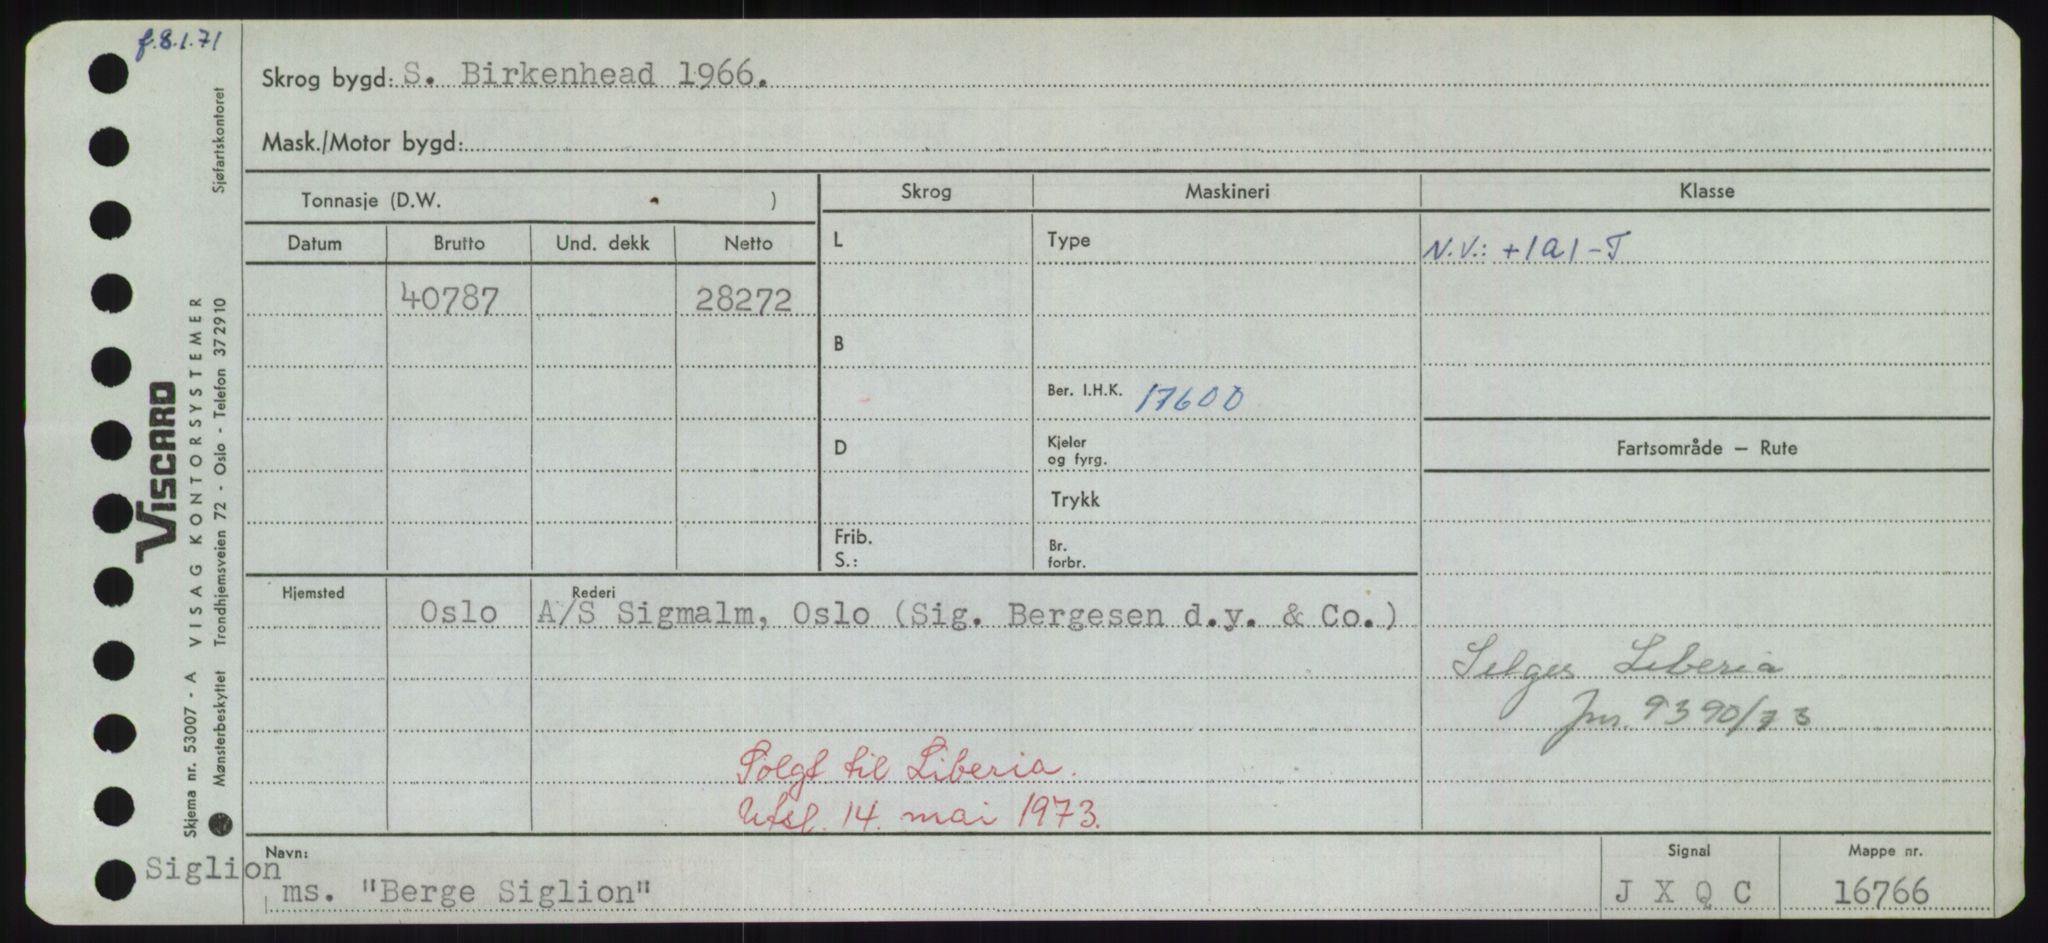 f.8.1.71
Skrog bygd: S. Birkenhead 1966.
Mask./Motor bygd:
Tonnasje (D.W. )
Skrog
Maskineri
Klasse
Datum
Brutto
Und. dekk
Netto
L
Type
N.V.: +1A1-T
40787
28272
B
Ber. I.H.K. 17600
D
Kjeler
og fyrg.
Fartsområde — Rute
Trykk
Frib.
S.:
Br.
forbr.
Hjemsted
Rederi
Oslo
A/S Sigmalm, Oslo (Sig. Bergesen d.y. & Co.)
Selges Liberia
Jnr. 9390/73
Solgt til Liberia.
Utsl. 14. mai 1973.
Siglion
Navn:
ms. "Berge Siglion"
Signal
J X Q C
Mappe nr.
16766
Sjøfartskontoret
VISCARD
VISAG KONTORSYSTEMER
Trondhjemsveien 72 - Oslo - Telefon 372910
Skjema nr. 53007 - A
Mønsterbeskyttet